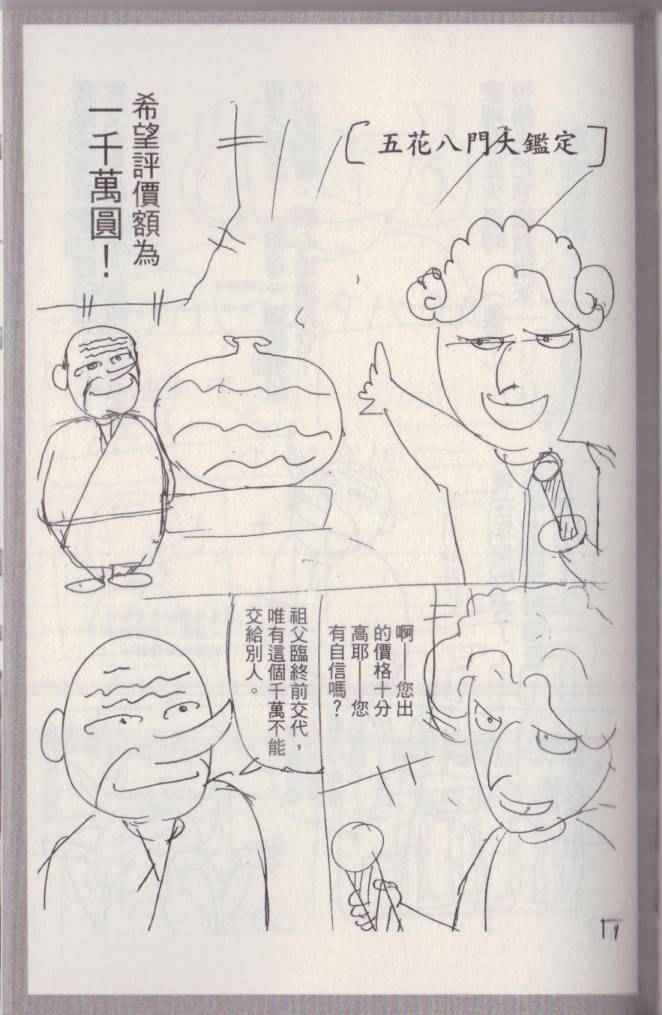 五花八門大鑑定
希望評價額為
一千萬圓！
啊──您出
的價格十分
高耶──您
有自信嗎？
祖父臨終前交代，
唯有這個千萬不能
交給別人。